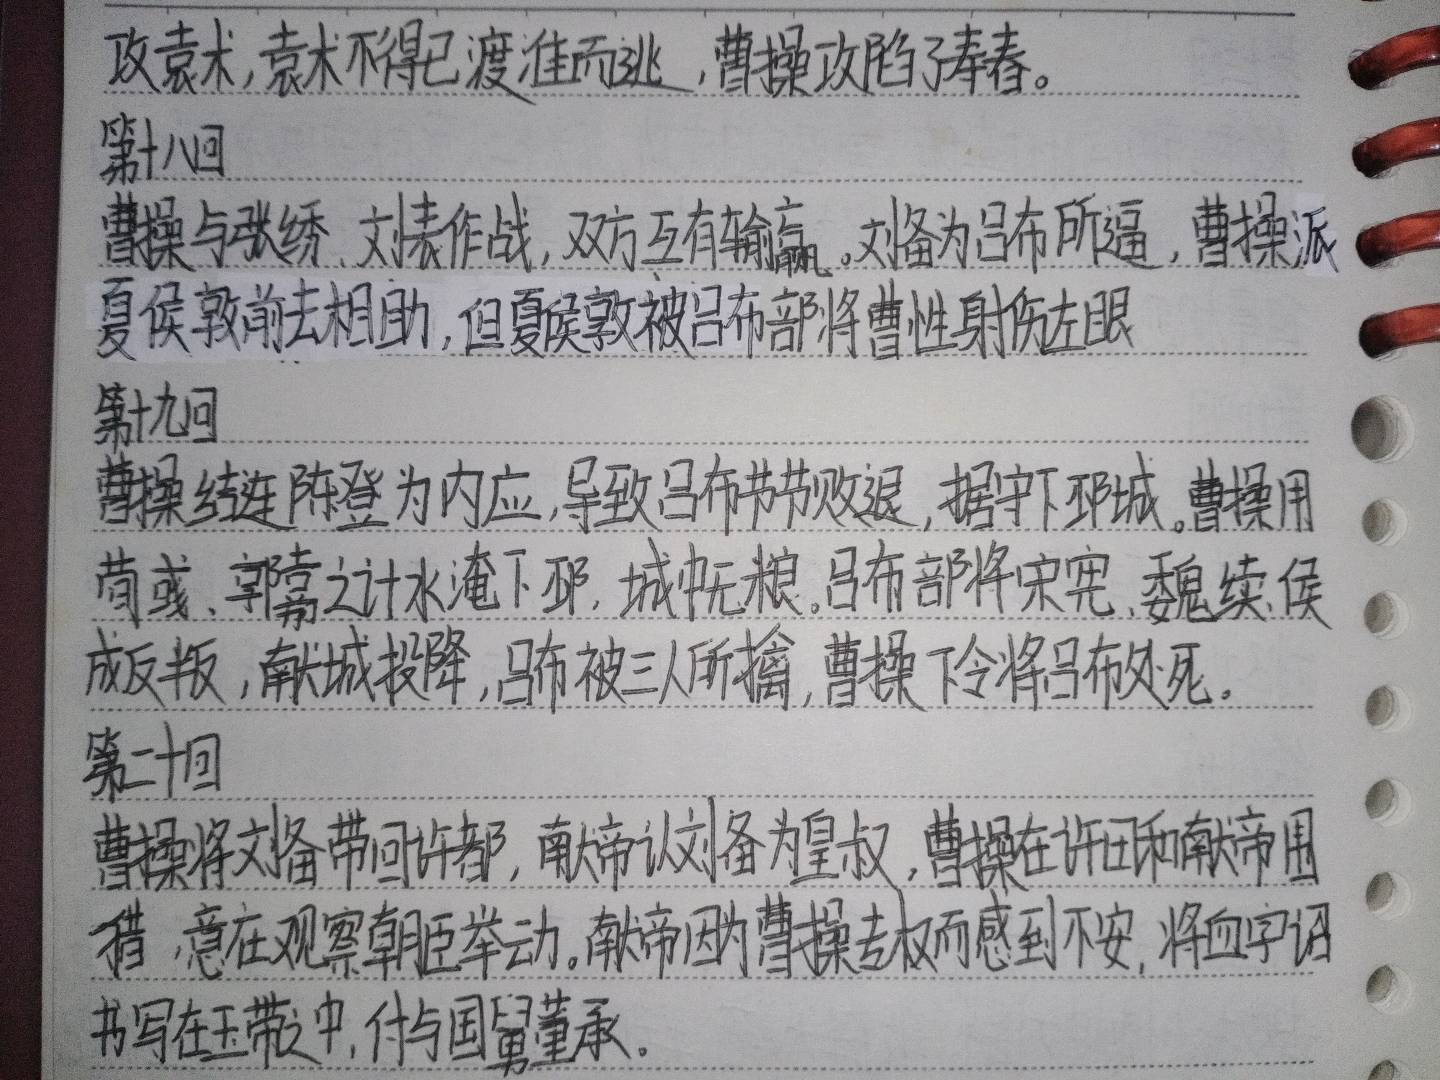 攻袁术,袁术不得已渡淮而逃,曹操攻陷了寿春。
第十八回
曹操与张绣、刘表作战,双方互有输赢。刘备为吕布所逼,曹操派
夏侯敦前去相助,但夏侯敦被吕布部将曹性射伤左眼
第十九回
曹操结连陈登为内应,导致吕布节节败退,据守下邳城。曹操用
荀彧、郭嘉之计水淹下邳,城中无粮。吕布部将宋宪、魏续、侯
成反叛,献城投降,吕布被三人所擒,曹操下令将吕布处死。
第二十回
曹操将刘备带回许都,献帝认刘备为皇叔,曹操在许田和献帝围
猎,意在观察朝臣举动。献帝因为曹操专权而感到不安,将血字诏
书写在玉带之中,付与国舅董承。